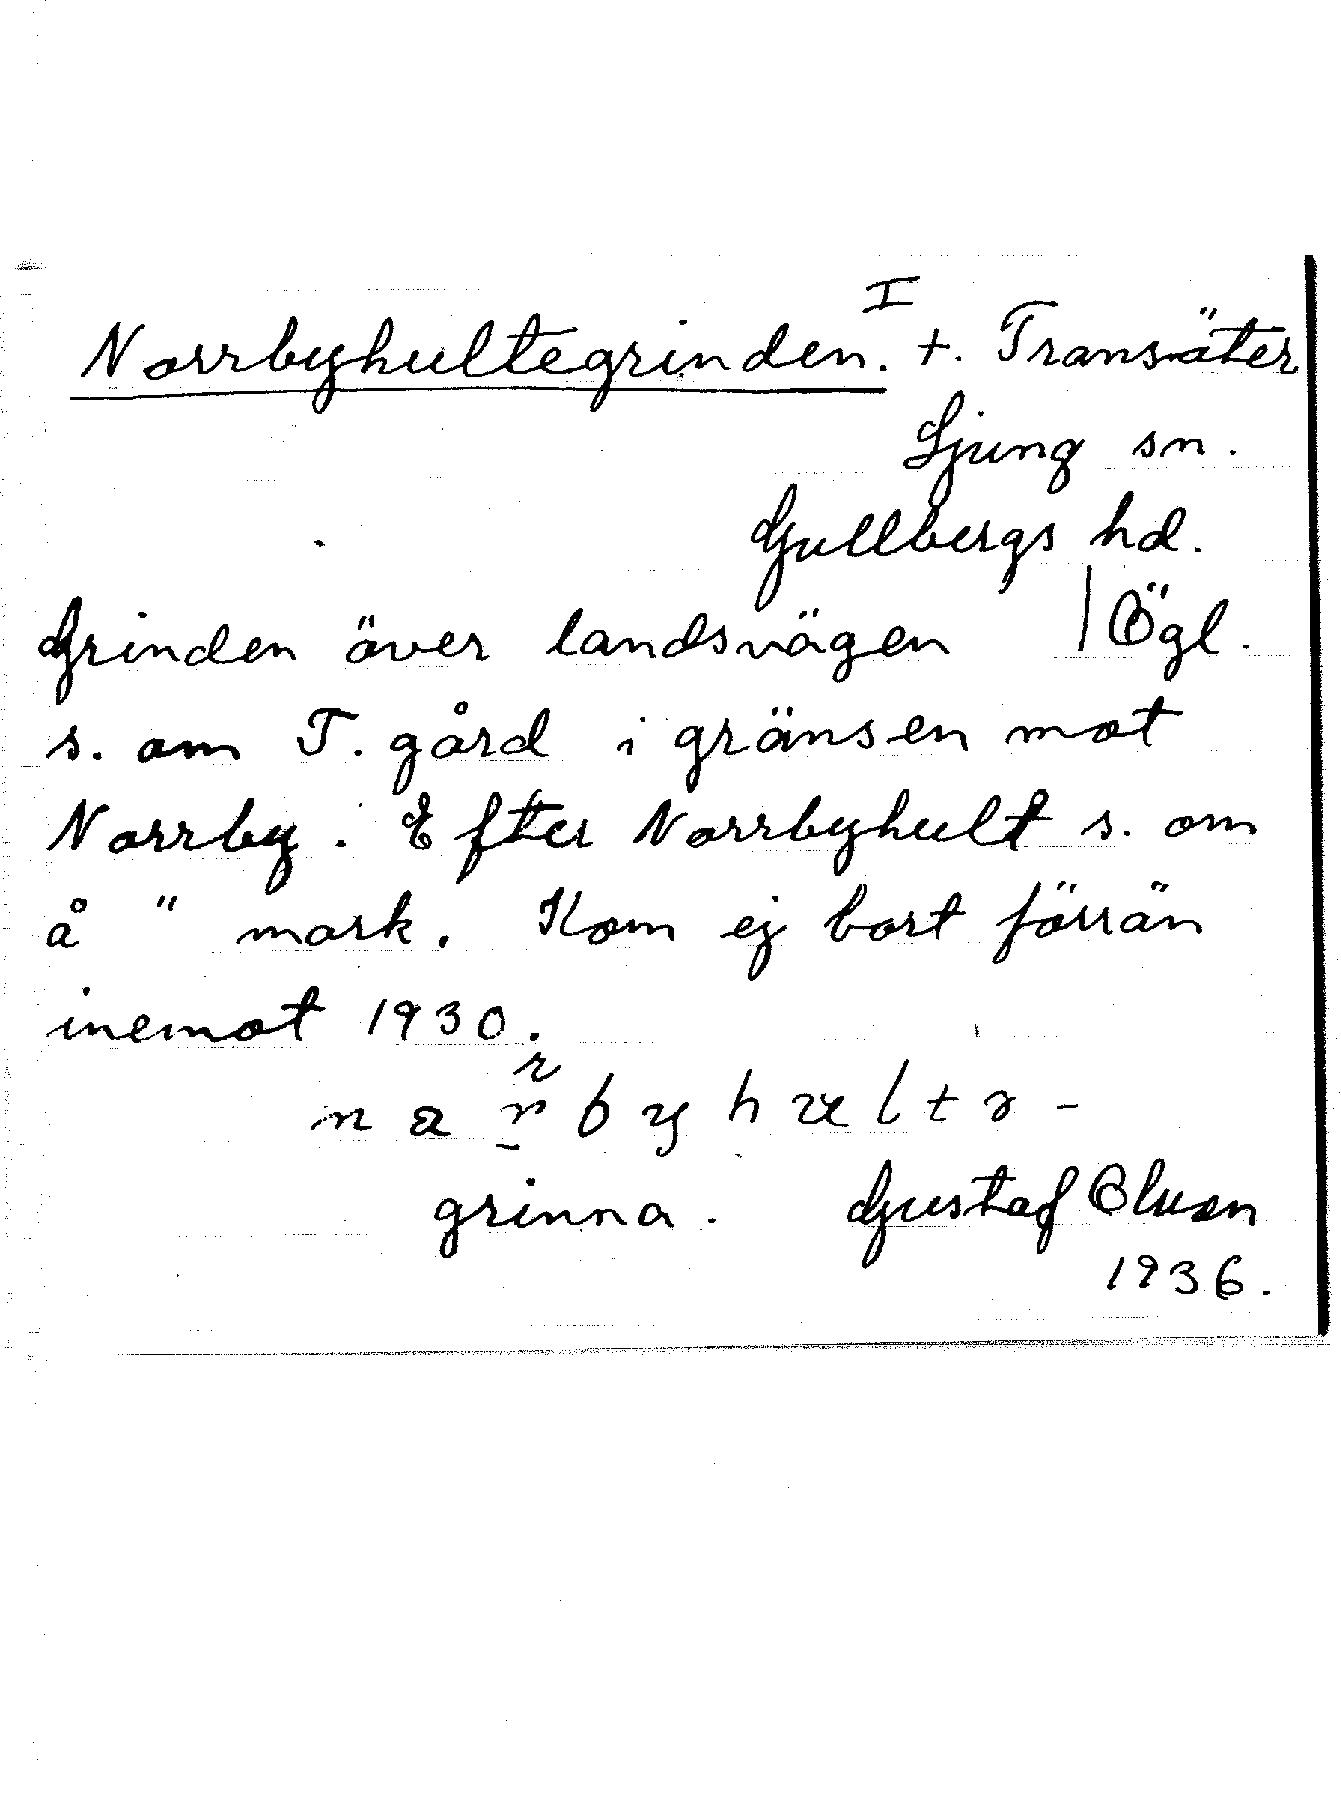 Norrbyhultegrinden. I +. Transäter
Ljung sn.
Gullbergs hd.
Grinden över landsvägen | Ögl.
s. om T. gård i gränsen mot
Norrby. Efter Norrbyhult s. om
å " mark. Kom ej bort förrän
inemot 1930.
grinna. Gustaf Olsson
1936.